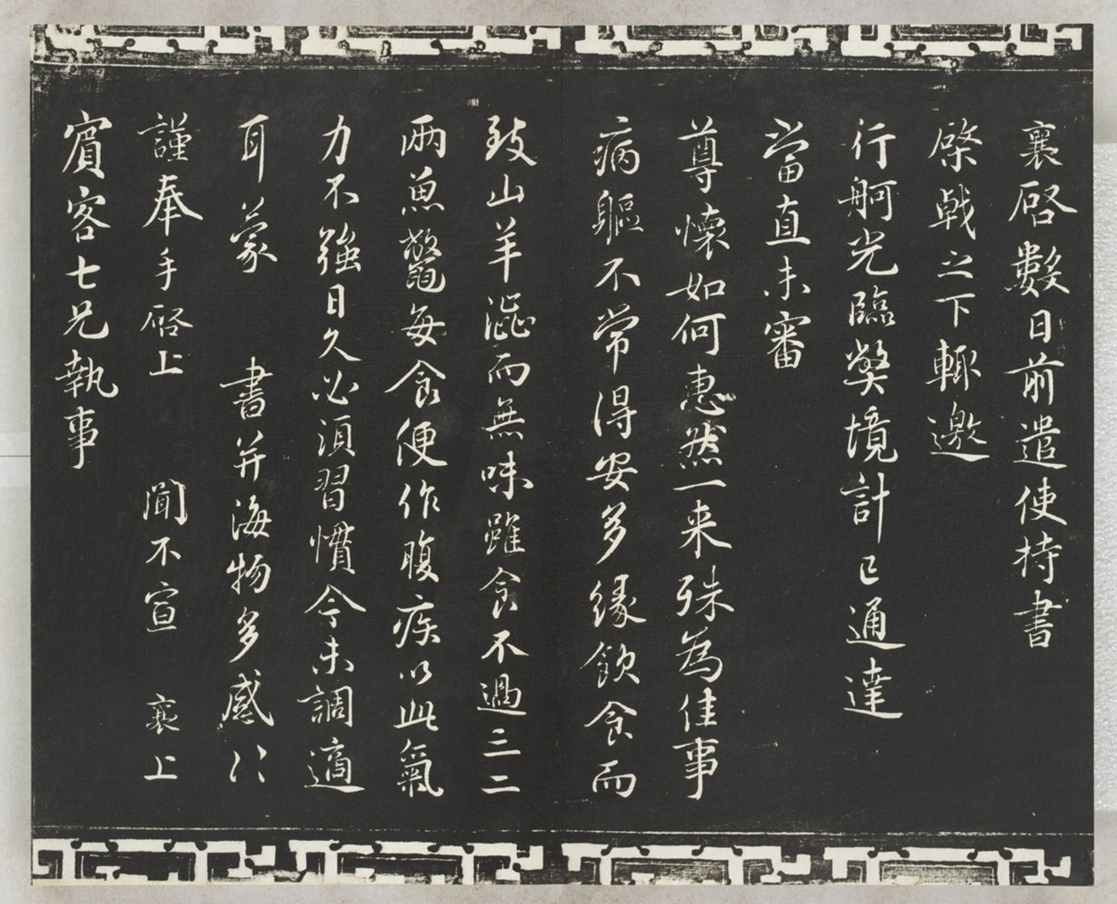 襄啓數日前遣使持書
棨戟之下輙邀
行舸光臨弊境計已通達
當直未審
尊懷如何惠然一来殊為佳事
病軀不常得安多緣飲食而
致山羊澁而無味雖食不過三二
兩魚鼈每食便作腹疾以此氣
力不強日久必須習慣今未調適
耳蒙 書并海物多感〻
謹奉手啓上 聞不宣 襄上
賓客七兄執事